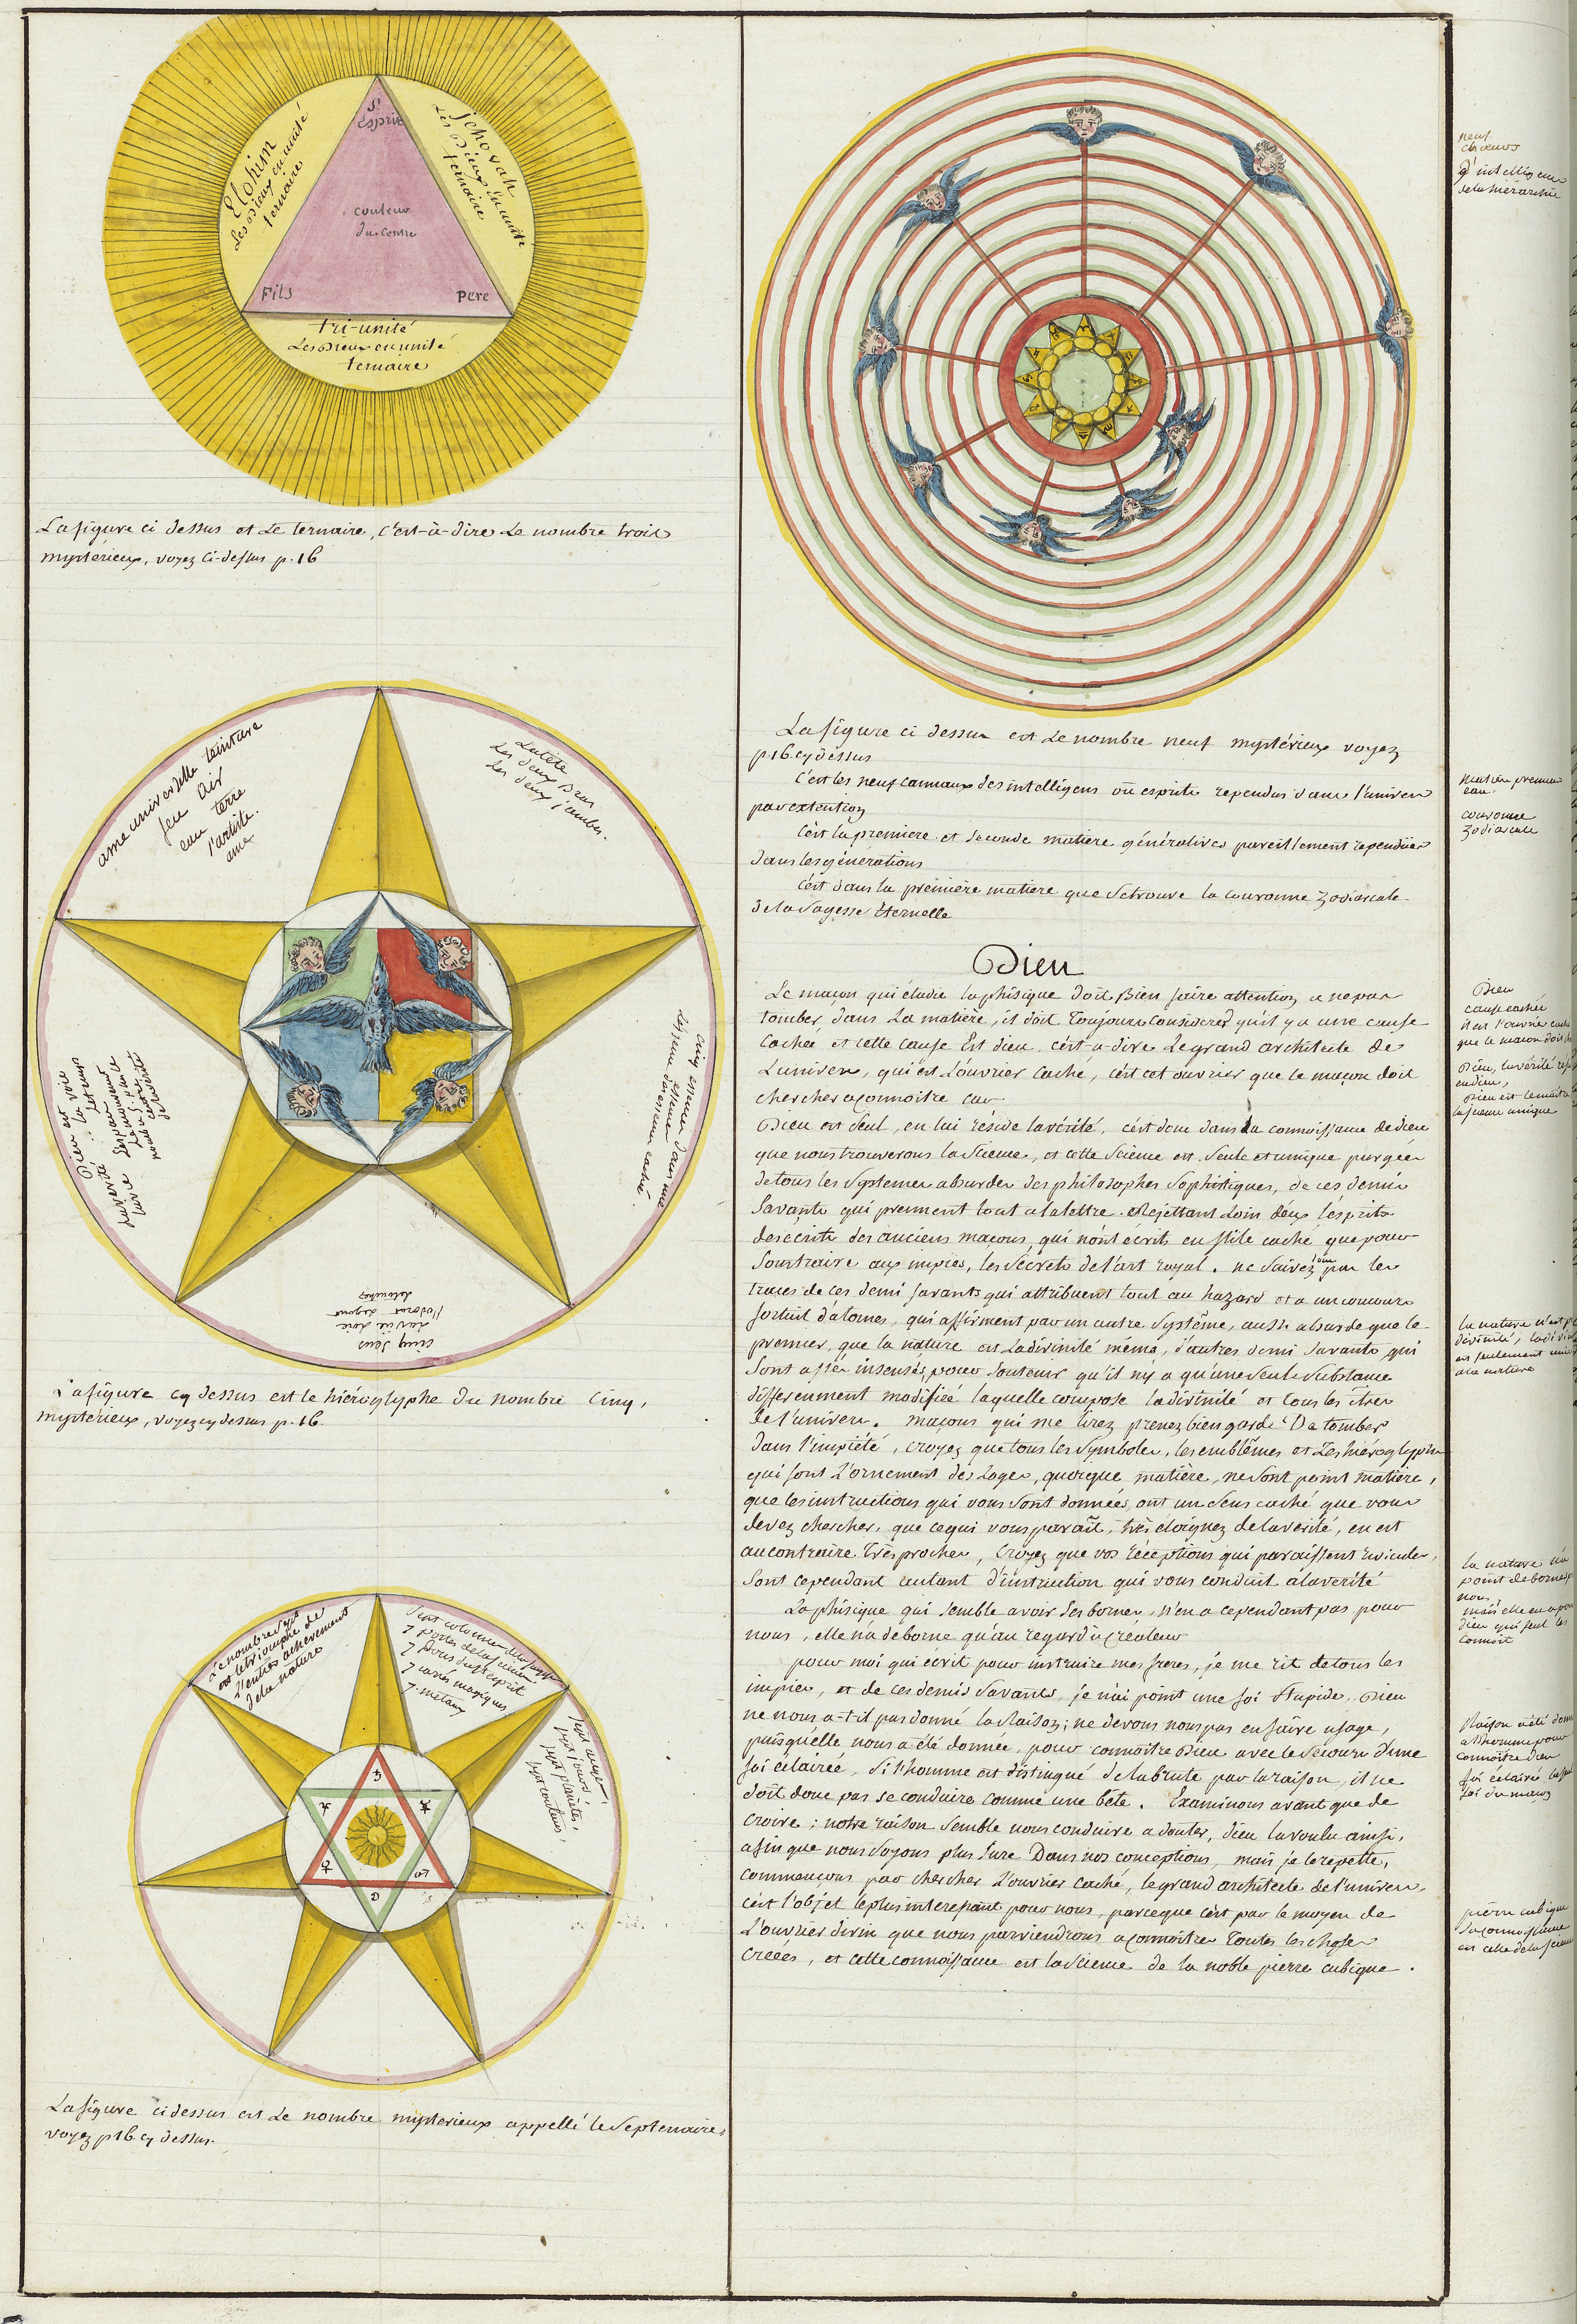 Elohim
Les Dieux en unité
ternaire
Jehovah
Les Dieux en unité
ternaire
St
esprit
couleur
du centre
Fils
Pere
tri-unité
Les Dieux en unité
ternaire
La figure ci dessus est Le ternaire, c'est-à-dire Le nombre trois
mystérieux, voyez ci-dessus p. 16
ame universelle teinture
feu air
eau terre
l'artiste.
ame
La tête
Les deux bras
Les deux jambes.
Dieu est La voie
La vérité
La vie
cinq sens
La vue Loie
l'odorat Le gout
Le toucher
La figure cy dessus est le hiéroglyphe du nombre cinq,
mystérieux, voyez cy dessus p. 16
Le nombre sept
est le triomphe de
l'achevement
de la nature
Sept colonnes de la sagesse
7 portes de la science
7 Dons du St esprit
7 magiques
7. métaux
Sept anges,
sept jours,
sept planètes,
sept couleurs,
♄
♃
☿
♀
G
La figure ci dessus est Le nombre mysterieux appellé le Septenaire,
voyez p 16 cy dessus.
La figure ci dessus est Le nombre neuf mystérieux voyez
p 16 cy dessus
C'est les neuf cannaux des intelligens où esprits rependus dans l'univers
par extention
C'est la premiere et seconde matiere génératives pareillement rependües
dans les générations
C'est dans la première matiere que se trouve la couronne Zodiacale
de la Sagesse Eternelle
Dieu
Le maçon qui étudie la phisique doit Bien faire attention a ne pas
tomber dans La matière, il doit Toujours Considerer qu'il y a une cause
Cachée et cette cause Est dieu, c'est-a-dire Le grand architecte de
L'univers, qui est L'ouvrier Caché, c'est cet ouvrier que le maçon doit
chercher a connoitre car
Dieu est Seul, en lui réside la vérité, c'est donc dans La connoissance de dieu
que nous trouverons la Science, et cette Science est Seule et unique purgée
de tous les Systemes absurdes des philosophes Sophistiques, de ces demis
Savants qui prennent tout a la lettre. Rejettant Loin d'eux l'esprit
des écrits des anciens maçons, qui n'ont écrits en stile caché que pour
Soustraire aux impies, les Secrets de l'art royal. ne Suivez donc pas les
traces de ces demi Savants qui attribuent tout au hazard et a un concours
fortuit d'atomes, qui affirment par un autre Système, aussi absurde que le
premier, que la nature est La divinité même, d'autres demi Savants qui
Sont assés insensés pour Soutenir qu'il n'y a qu'une Seule Substance
differemment modifiée laquelle compose la divinité et tous les êtres
de l'univers. maçons qui me lirez prenez bien garde De tomber
dans l'impiété, croyez que tous les Symboles, les emblêmes et Les hiéroglyphes
qui sont L'ornement des Loges, quoique matière, ne Sont point matière,
que les instructions qui vous Sont données ont un Sens caché que vous
devez chercher, que ce qui vous parait très éloignez de la verité, en est
au contraire très proches, Croyez que vos réceptions qui paraissent ridicules,
Sont cependant autant d'instruction qui vous conduit a la verité
La phisique qui Semble avoir Ses bornes, n'en a cependant pas pour
nous, elle n'a de borne qu'au regard du Créateur
pour moi qui écrit pour instruire mes freres, je me rit de tous les
impies, et de ces demis Savants, je n'ai point une foi Stupide. Dieu
ne nous a-t-il pas donné la Raison; ne devons nous pas en faire usage,
puisqu'elle nous a été donnée, pour connoitre Dieu avec le Secours d'une
foi éclairée, Si l'homme est distingué de la brute par la raison, il ne
doit donc pas se conduire comme une bête. Examinons avant que de
croire; notre raison Semble nous conduire a douter, dieu l'a voulu ainsi,
afin que nous Soyons plus Sure Dans nos conceptions, mais je le repette,
commençons par chercher L'ouvrier caché, le grand architecte de l'univers,
c'est l'objet le plus interessant pour nous, parceque c'est par le moyen de
L'ouvrier divin que nous parviendrons a connoitre Toutes les choses
Créées, et cette connoissance est la Science de la noble pierre cubique.
neuf
chœurs
d'intelligence
de la hierarchie
matière premiere
eau.
couronne
Zodiacale
Dieu
cause cachée
il est l'ouvrier caché
que le maçon doit
Dieu, la vérité
en dieu,
Dieu est
la science unique
la nature n'est
divinité, la
est seulement
a la nature
la nature n'a
point de bornes p
nous,
mais elle en a pour
dieu qui seul les
connoit
Raison a été donn
a l'homme pour
connoitre dieu
foi éclairée
foi du maçon
pierre cubique
Sa connoissance
est celle de la science